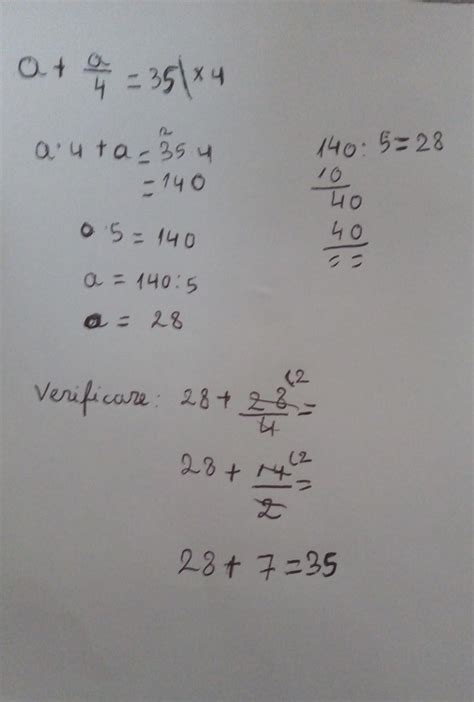 a + a/4 = 35 | × 4
a·4 + a = 35·4
2
= 140
a·5 = 140
a = 140:5
a = 28
140 : 5 = 28
10
40
40
= =
Verificare: 28 + 28/4 (2 =
28 + 14/2 (2 =
28 + 7 = 35